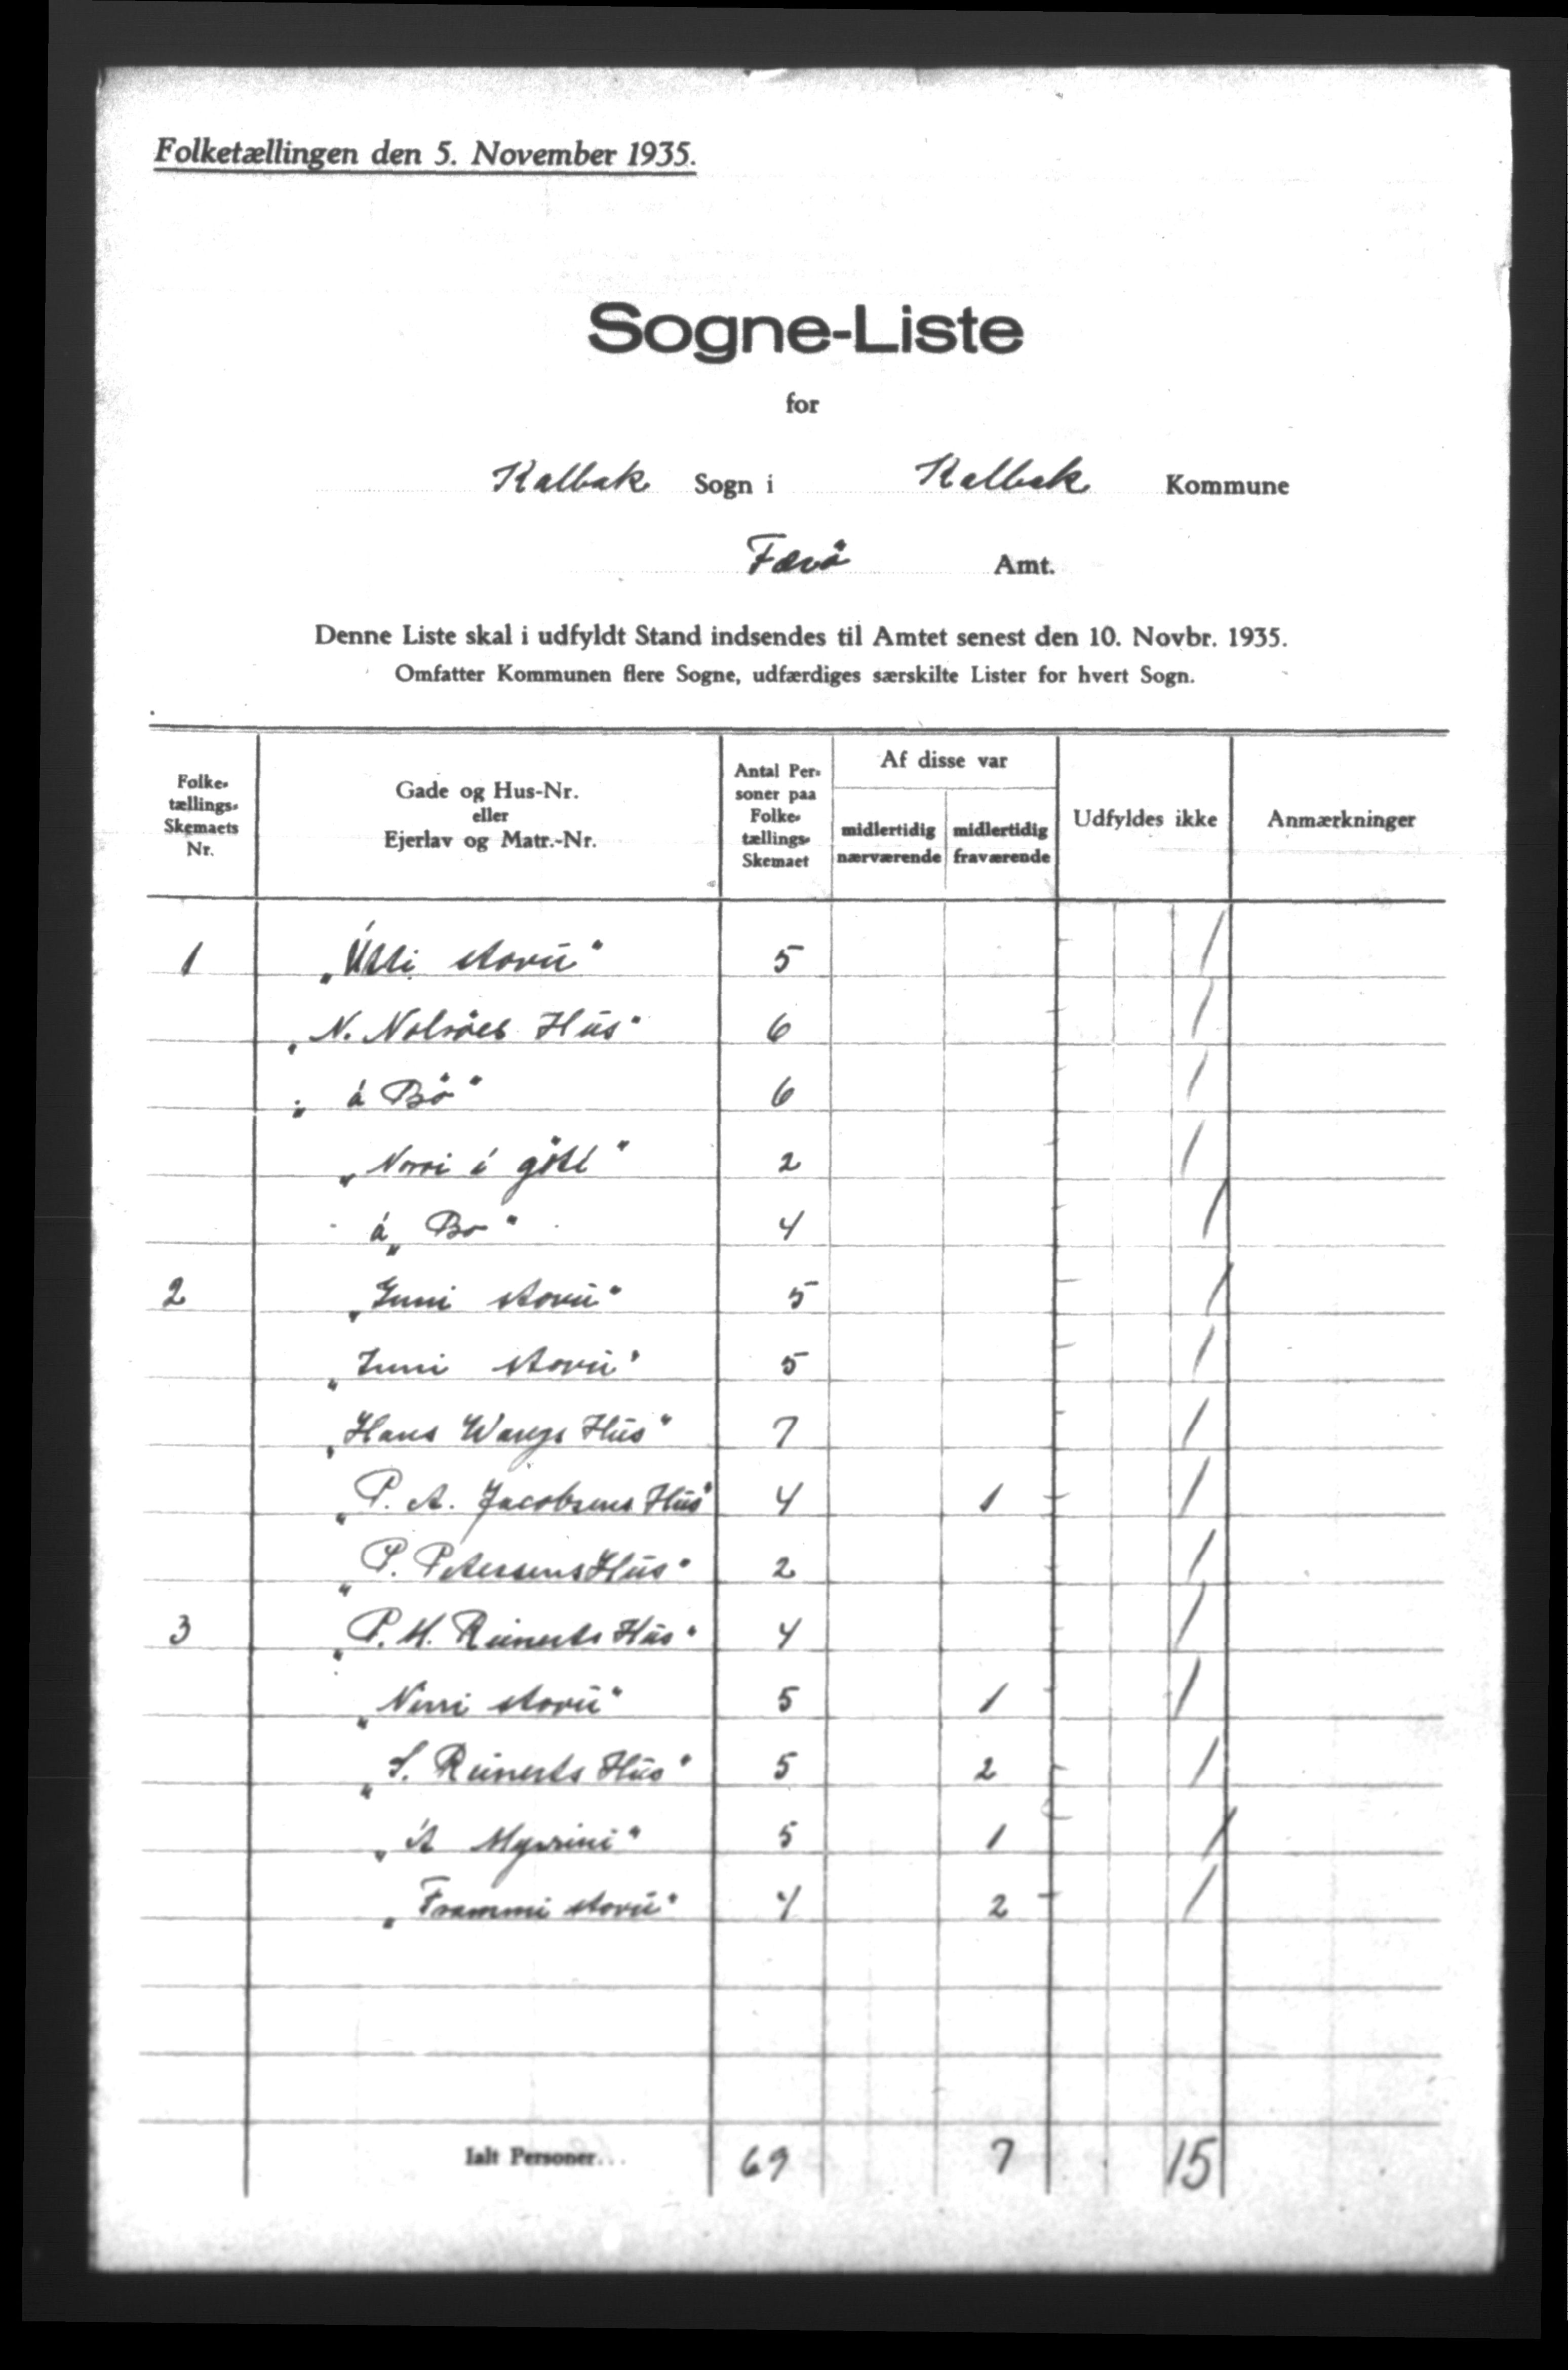 Folketællingen den 5. November 1935.
Sogne-Liste
for
Kalbak Sogn i Kalbak Kommune
Færö Amt.
Denne Liste skal i udfyldt Stand indsendes til Amtet senest den 10. Novbr. 1935.
Omfatter Kommunen flere Sogne, udfærdiges særskilte Lister for hvert Sogn.
Folketællings-Skemaets Nr. Gade og Hus-Nr. eller Ejerlav og Matr.-Nr. Antal Personer paa Folketællings-Skemaet Af disse var midlertidig nærværende midlertidig fraværende Udfyldes ikke Anmærkninger
1 „ stovu“ 5 /
„N. Nolsöes Hus“ 6 /
„á Bö“ 6 /
„Norri í göti“ 2 /
á „Bo“ 4 /
2 „Inni stovu“ 5 /
„Inni stovu“ 5 /
„Hans Wangs Hus“ 7 /
„P. A. Jacobsens Hus“ 4 1 /
„P. Petersens Hus“ 2 /
3 „P. M. Reinerts Hus“ 4 /
„Nerri stovu“ 5 1 /
„S. Reinerts Hus“ 5 2 /
„Á Myrini“ 5 1 /
„Frammi stovu“ 4 2 /
Ialt Personer... 69 7 15